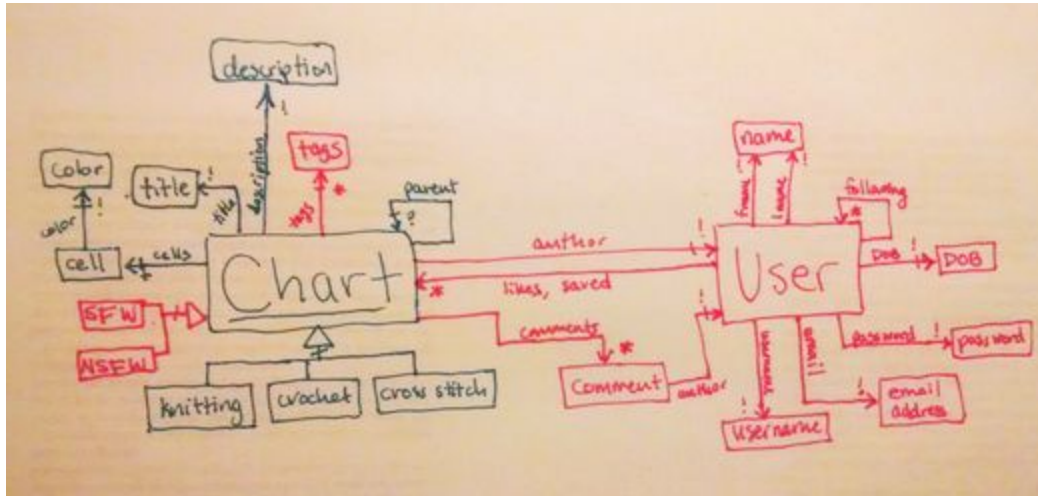 description
!
description
tags
*
tags
color
!
color
title
!
title
cell
cells
parent
?
Chart
SFW
NSFW
knitting
crochet
cross stitch
author
!
likes, saved
*
comments
*
Comment
author
!
name
fname
!
lname
!
following
*
User
DOB
!
DOB
password
!
password
email
!
email
address
username
!
username